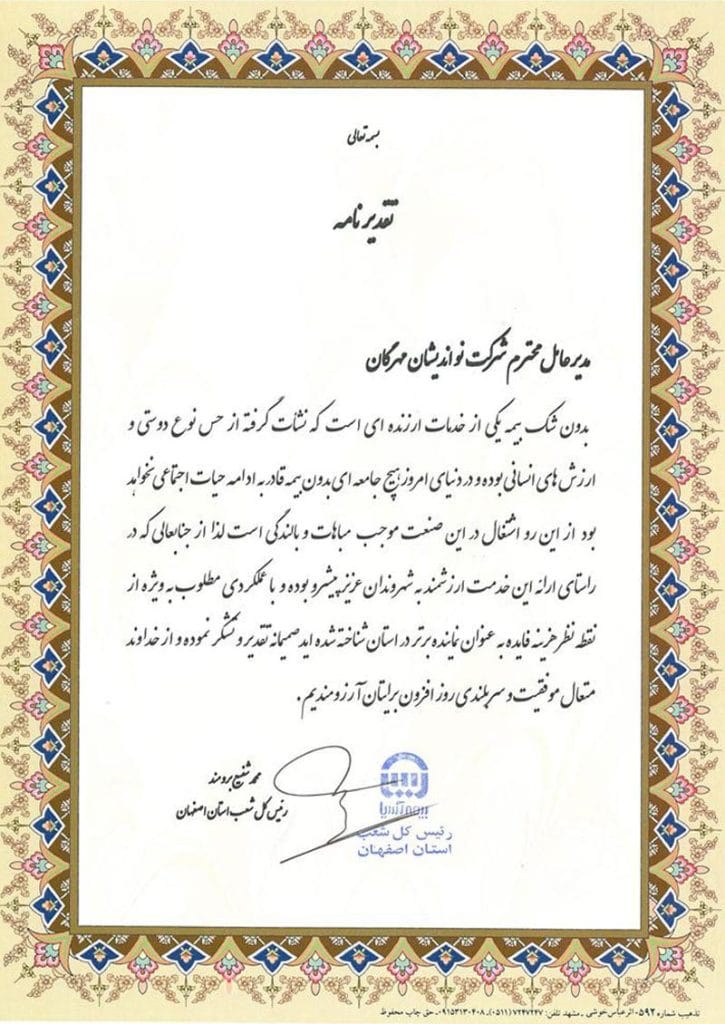 بسمه تعالی
تقدیر نامه
مدیر عامل محترم شرکت نو اندیشان مهرگان
بدون شک بیمه یکی از خدمات ارزنده ای است که نشأت گرفته از حس نوع دوستی و
ارزش های انسانی بوده و در دنیای امروز هیچ جامعه ای بدون بیمه قادر به ادامه حیات اجتماعی نخواهد
بود از این رو اشتغال در این صنعت موجب مباهات و بالندگی است لذا از جنابعالی که در
راستای ارائه این خدمت ارزشمند به شهروندان عزیز پیشرو بوده و با عملکردی مطلوب به ویژه از
نقطه نظر هزینه فایده به عنوان نماینده برتر در استان شناخته شده اید صمیمانه تقدیر و تشکر نموده و از خداوند
متعال موفقیت و سربلندی روز افزون برایتان آرزومندیم.
محمد شفیع برومند
رئیس کل شعب استان اصفهان
بیمه آسیا
رئیس کل شعب
استان اصفهان
تذهیب شماره ۰۵۹۲ اثر عباس خوشی - مشهد تلفن: ۷۲۴۷۲۴۷ (۰۵۱۱)-۰۹۱۵۳۱۳۰۴۰۸ حق چاپ محفوظ